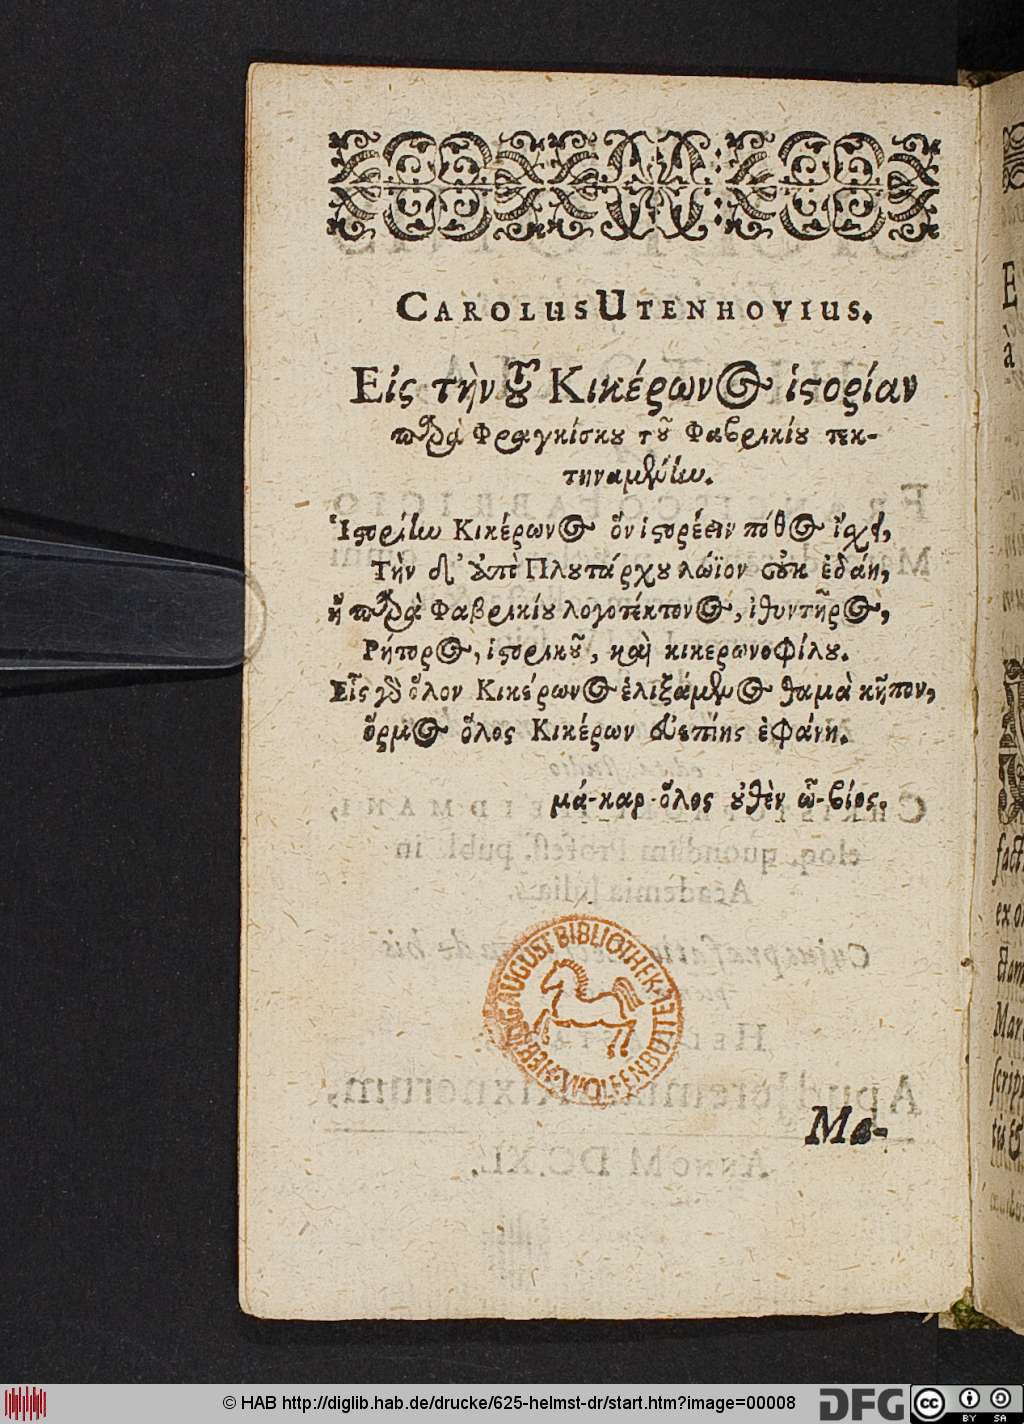 CAROLUS UTENHOVIUS.
Εἰς τὴν τοῦ Κικέρωνος ἱστορίαν
παρὰ Φραγκίσκου τοῦ Φαβρικίου τεκ-
τηναμένην.
Ἱστορίην Κικέρωνος ὃν ἱστορέειν πόθος ἴσχει,
Τὴν δ' ὑπὸ Πλουτάρχου λώϊον οὐκ ἐδάη,
ἢ παρὰ Φαβρικίου λογοτέκτονος, ἰθυντῆρος,
Ρήτορος, ἱστορικοῦ, καὶ κικερωνοφίλου.
Εἷς γὰρ ὅλον Κικέρωνος ἑλιξάμενος θαμὰ κῆπον,
ὅρμος ὅλος Κικέρων ἐφάνη.
μά-καρ-ὅλος οὐθὲν ὦ-βίος.
HERZOG AUGUST BIBLIOTHEK WOLFENBÜTTEL
Ma-
© HAB http://diglib.hab.de/drucke/625-helmst-dr/start.htm?image=00008
DFG
BY SA